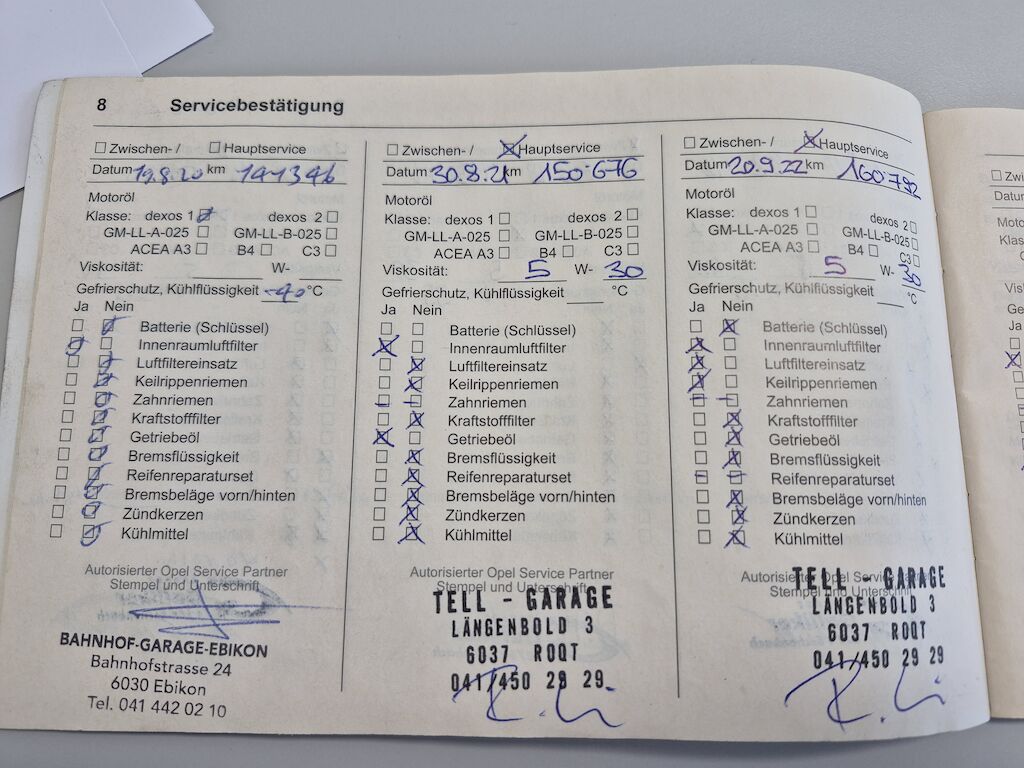 8 Servicebestätigung
☐ Zwischen- / ☐ Hauptservice
Datum 19.8.20 km 141346
Motoröl
Klasse: dexos 1 ☑ dexos 2 ☐
☐ GM-LL-A-025 ☐ GM-LL-B-025 ☐
ACEA A3 ☐ B4 ☐ C3 ☐
Viskosität: W-
Gefrierschutz, Kühlflüssigkeit -40 °C
Ja Nein
☐ ☑ Batterie (Schlüssel)
☑ ☐ Innenraumluftfilter
☐ ☑ Luftfiltereinsatz
☐ ☑ Keilrippenriemen
☐ ☑ Zahnriemen
☐ ☑ Kraftstofffilter
☐ ☑ Getriebeöl
☐ ☑ Bremsflüssigkeit
☐ ☑ Reifenreparaturset
☐ ☑ Bremsbeläge vorn/hinten
☐ ☑ Zündkerzen
☐ ☑ Kühlmittel
Autorisierter Opel Service Partner
Stempel und Unterschrift
BAHNHOF-GARAGE-EBIKON
Bahnhofstrasse 24
6030 Ebikon
Tel. 041 442 02 10
☐ Zwischen- / ☒ Hauptservice
Datum 30.8.21 km 150.676
Motoröl
Klasse: dexos 1 ☐ dexos 2 ☐
GM-LL-A-025 ☐ GM-LL-B-025 ☐
ACEA A3 ☐ B4 ☐ C3 ☐
Viskosität: 5 W- 30
Gefrierschutz, Kühlflüssigkeit °C
Ja Nein
☐ ☐ Batterie (Schlüssel)
☒ ☐ Innenraumluftfilter
☐ ☒ Luftfiltereinsatz
☐ ☒ Keilrippenriemen
- - Zahnriemen
☐ ☒ Kraftstofffilter
☒ ☐ Getriebeöl
☐ ☒ Bremsflüssigkeit
☐ ☒ Reifenreparaturset
☐ ☒ Bremsbeläge vorn/hinten
☐ ☒ Zündkerzen
☐ ☒ Kühlmittel
Autorisierter Opel Service Partner
Stempel und Unterschrift
TELL - GARAGE
LÄNGENBOLD 3
6037 ROOT
041/450 29 29
☐ Zwischen- / ☒ Hauptservice
Datum 20.9.22 km 160.792
Motoröl
Klasse: dexos 1 ☐ dexos 2 ☐
GM-LL-A-025 ☐ GM-LL-B-025 ☐
ACEA A3 ☐ B4 ☐ C3 ☐
Viskosität: 5 W-
Gefrierschutz, Kühlflüssigkeit °C
Ja Nein
☐ ☒ Batterie (Schlüssel)
☒ ☐ Innenraumluftfilter
☒ ☐ Luftfiltereinsatz
☒ ☐ Keilrippenriemen
- - Zahnriemen
☐ ☒ Kraftstofffilter
☐ ☒ Getriebeöl
☐ ☒ Bremsflüssigkeit
- - Reifenreparaturset
☐ ☒ Bremsbeläge vorn/hinten
☐ ☒ Zündkerzen
☐ ☒ Kühlmittel
Autorisierter Opel Service
Stempel und Unterschrift
TELL - GARAGE
LÄNGENBOLD 3
6037 ROOT
041/450 29 29